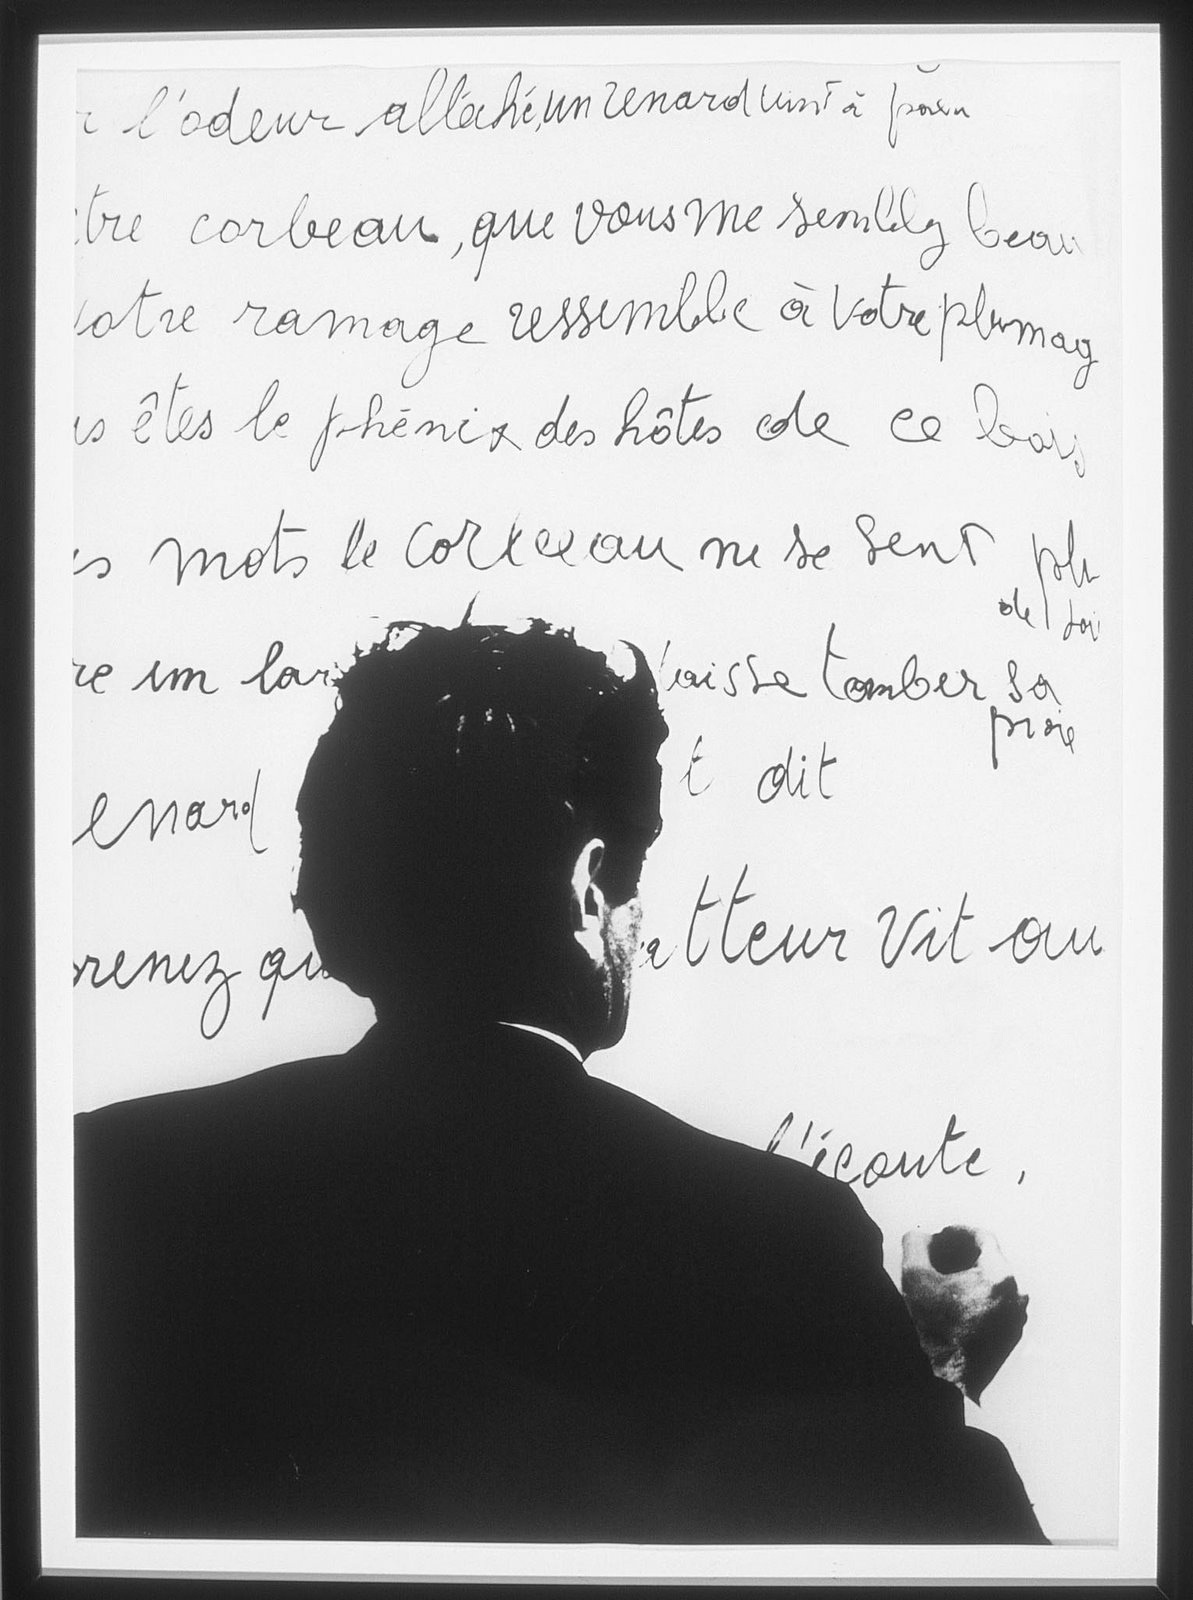 r l'odeur alléché, un renard vint à passa
tre corbeau, que vous me semblez beau
votre ramage ressemble à votre plumag
us êtes le phénix des hôtes de ce bois
es mots le corbeau ne se sent plu
de joi
re un lar laisse tomber sa
proie
enard t dit
prenez qu atteur vit au
l'écoute,